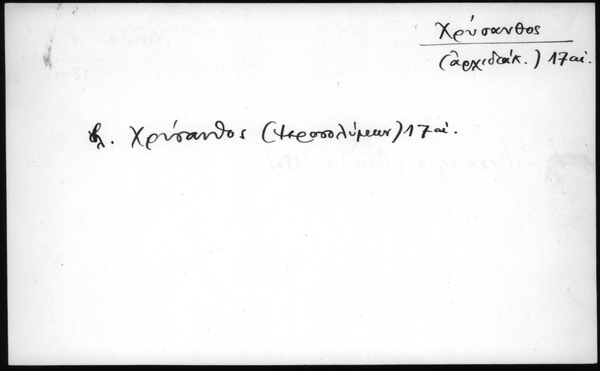 Χρύσανθος
(ἀρχιδιάκ.) 17 αἰ.
βλ. Χρύσανθος (Ἱεροσολύμων) 17 αἰ.